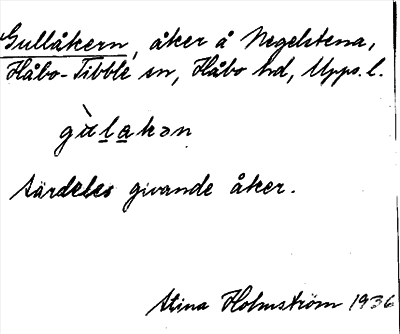 Gullåkern, åker å Negelstena,
Håbo-Tibble sn, Håbo hd, Upps. l.
gù̀lakən
särdeles givande åker.
Stina Holmström 1936